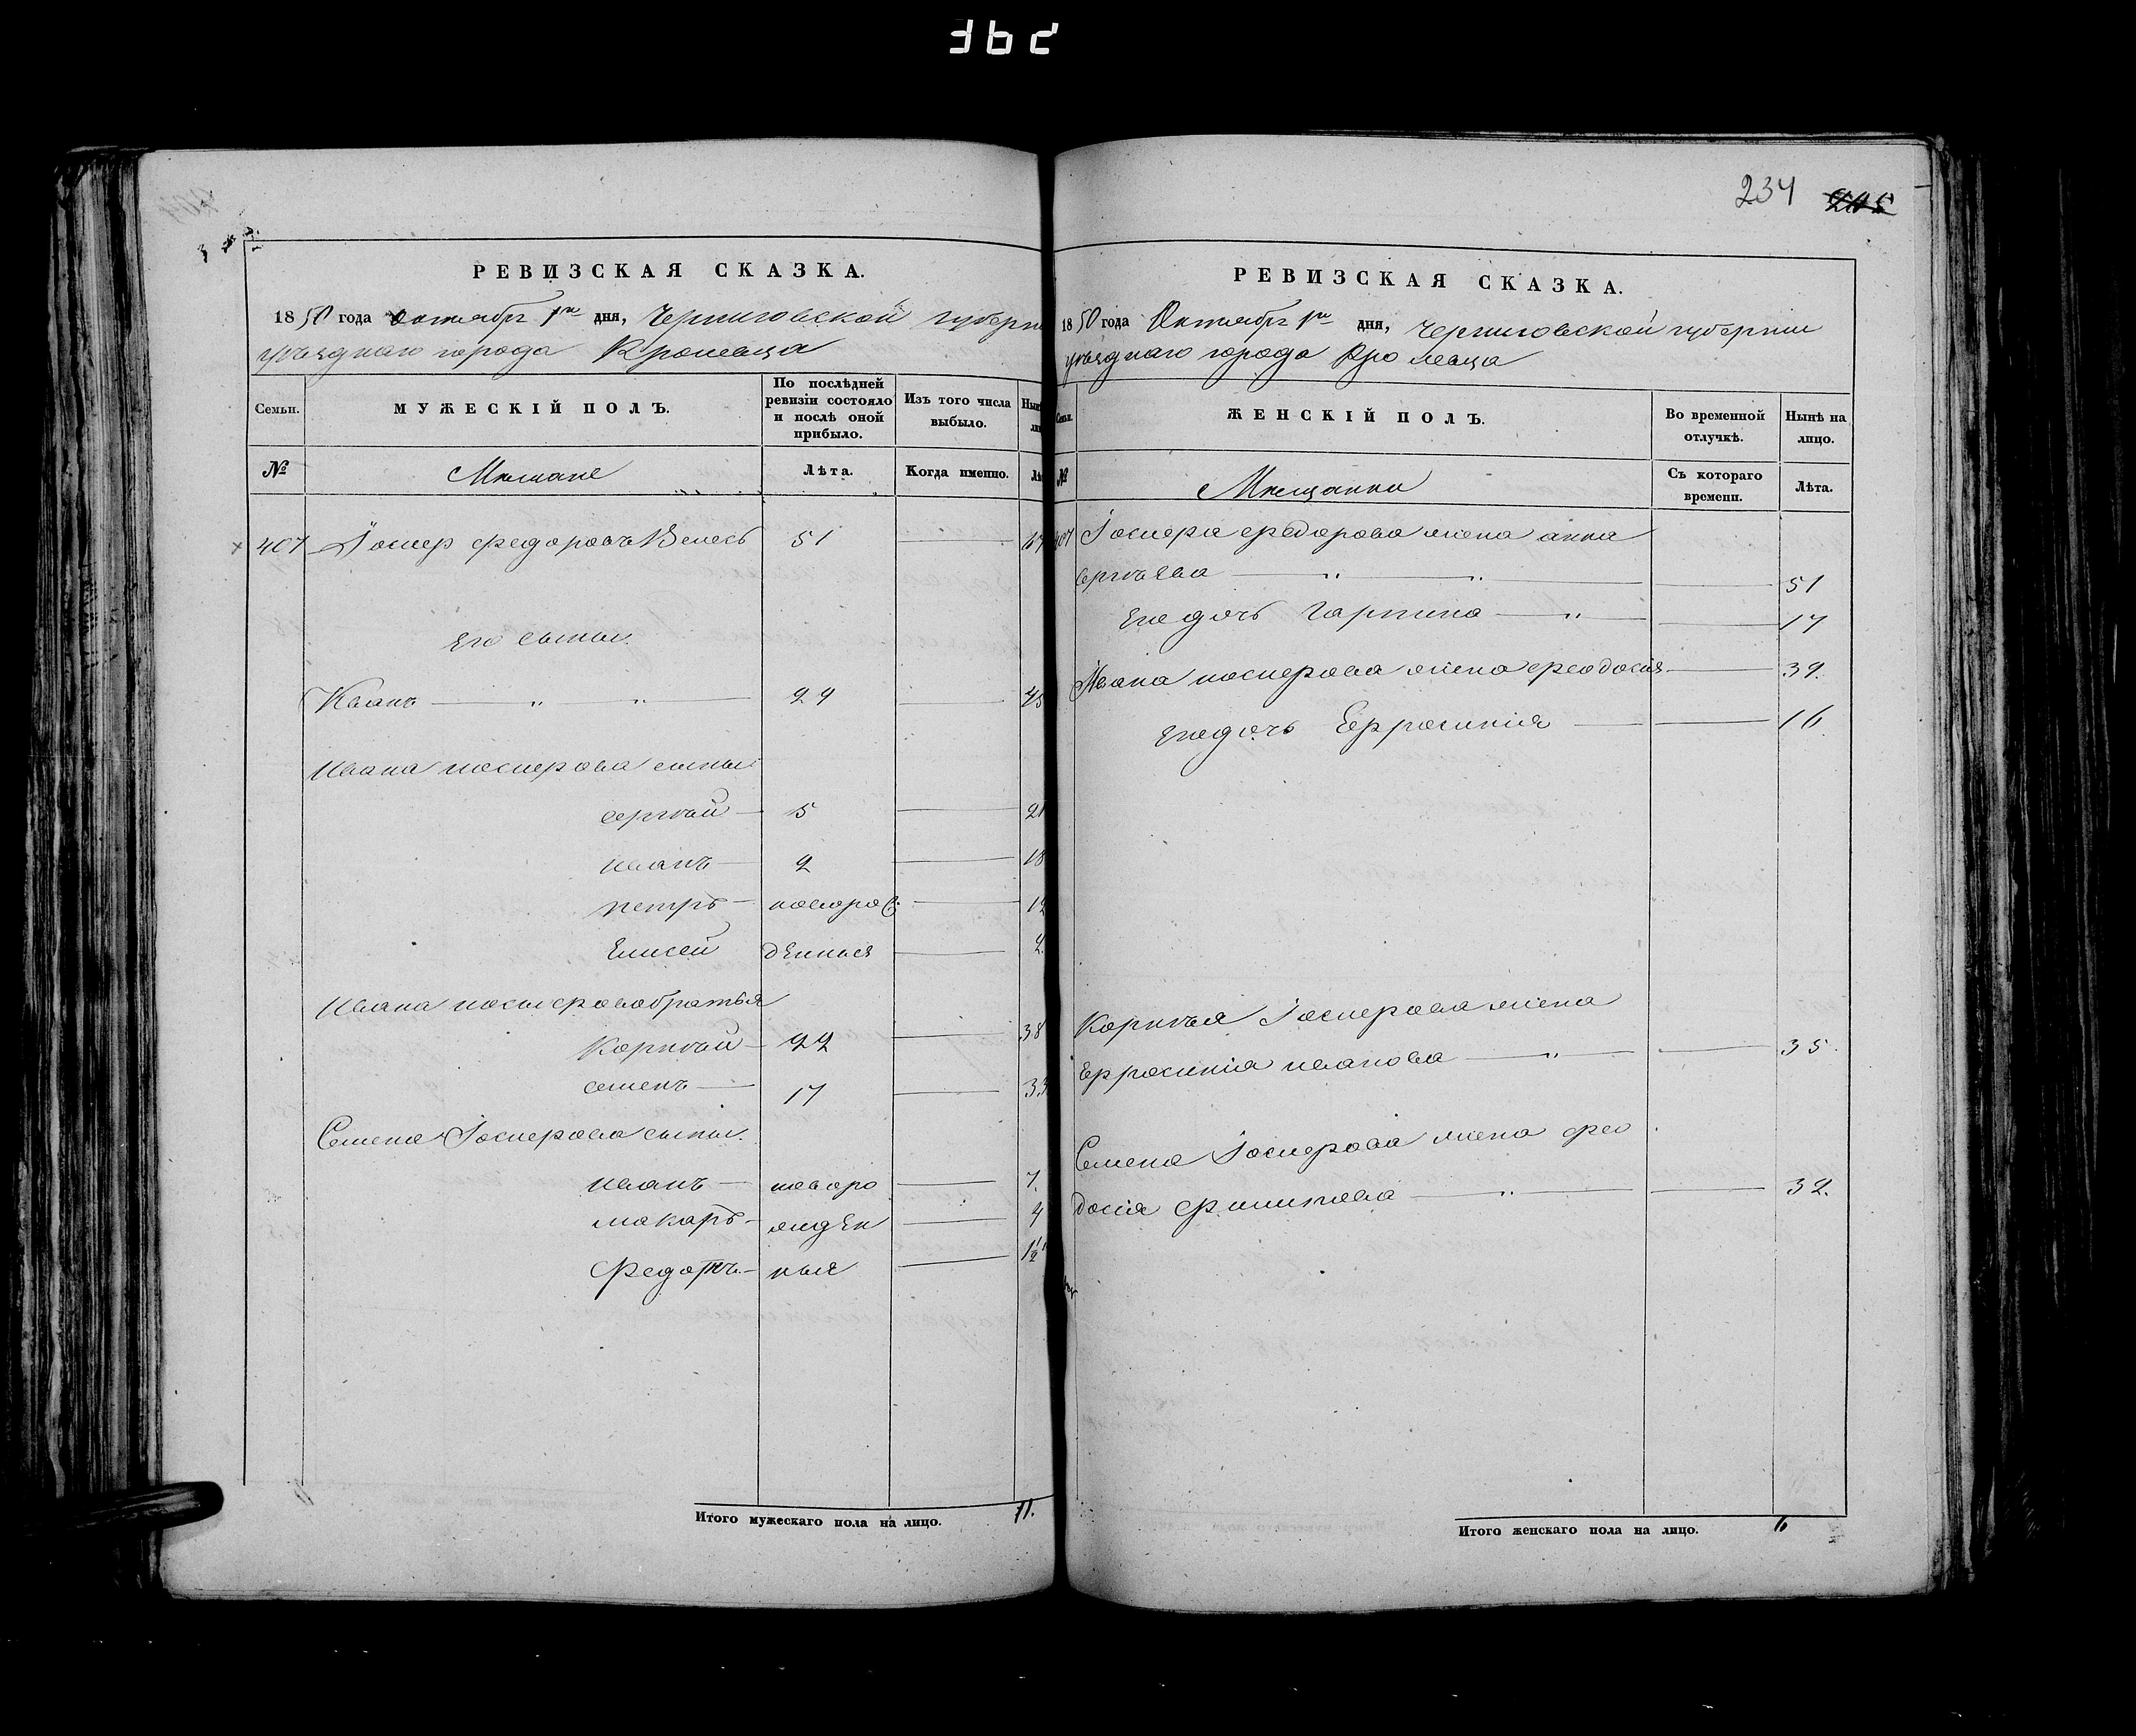 362
РЕВИЗСКАЯ СКАЗКА.
1850 года Октября 1го дня, Черниговской губерн
уѣзднаго города Кролевца
Семьи.
МУЖЕСКІЙ ПОЛЪ.
По послѣдней ревизіи состояло и послѣ оной прибыло.
Изъ того числа выбыло.
№
Мещане
Лѣта.
Когда именно.
407 Іосиер федоровъ 51
Его сыны.
Иванъ 29 45
Ивана иосиерова сыны
сергѣй 5 21
иванъ 2 18
петръ новоро 12
Елисей денныя 2
Ивана иосиерова братья
Корнѣй 22 38
семенъ 17 33
Семена Іосиерова сыны.
иванъ новоро 7
макаръ жден 4
Федотъ ныя 1½
Итого мужескаго пола на лицо. 11.
234 205
РЕВИЗСКАЯ СКАЗКА.
1850 года Октября 1го дня, Черниговской губернии
уѣзднаго города Кролевца
Семьи.
ЖЕНСКІЙ ПОЛЪ.
Во временной отлучкѣ.
Нынѣ на лицо.
№
Мещанки
Съ котораго времени.
Лѣта.
407 Іосиера федорова жена анна
сергѣева 51
Ихъ дочь Гарпина 17
Ивана иосиерова жена феодосия 39.
Ихъ дочь Ефросинія 16
Корнѣя Іосиерова жена
Ефросинія иванова 35.
Семена Іосиерова жена фео
досія филипова 32.
Итого женскаго пола на лицо. 6